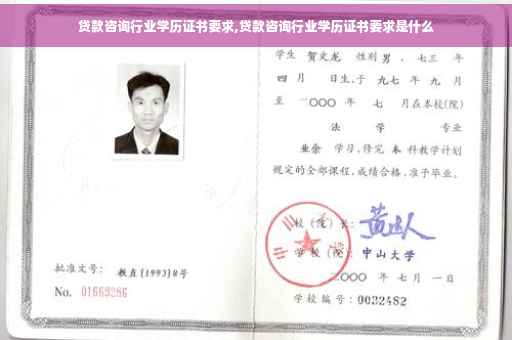 贷款咨询行业学历证书要求,贷款咨询行业学历证书要求是什么
学生 贺文龙 性别 男 、七三 年
四 月 日生,于 九七 年 九 月
至 二〇〇〇 年 七 月在本校(院)
法 学 专业
业余 学习,修完 本 科教学计划
规定的全部课程,成绩合格,准予毕业。
校(院)长:
学校(院): 中山大学
二〇〇〇 年 七 月 一 日
批准文号: 教直[1993]8号
No. 01663286
学校编号: 0032482